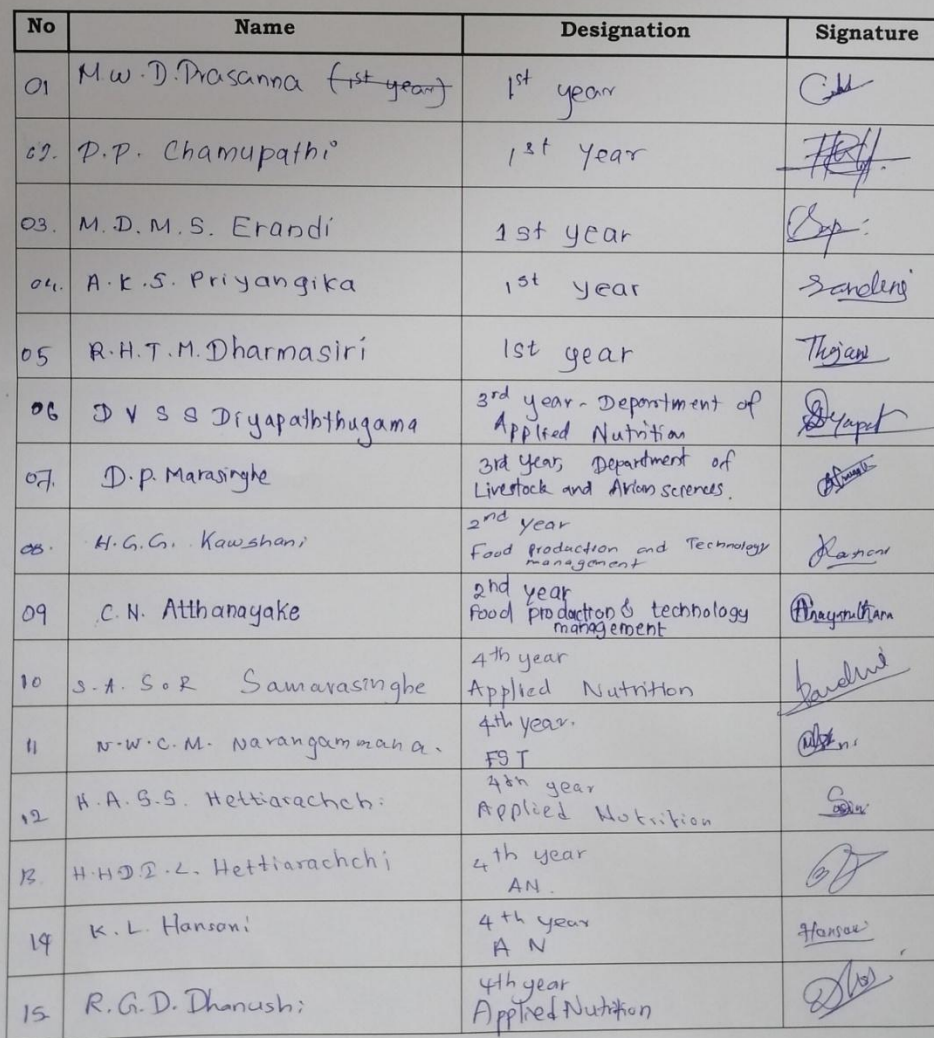 No Name Designation Signature
01 M.W.D.Prasanna (1st year) 1st year
02. P.P. Chamupathi 1st Year
03. M.D.M.S. Erandi 1st year
04. A.K.S. Priyangika 1st year Sandeni
05 R.H.T.M.Dharmasiri 1st year Thejani
06 D V S S Diyapaththugama 3rd year - Department of
Applied Nutrition
07. D.P. Marasinghe 3rd Year, Department of
Livestock and Avian sciences.
08. H.G.G. Kawshani 2nd year
Food production and Technology
management
09 C.N. Atthanayake 2nd year
Food production & technology
management
10 S.A.S.R Samarasinghe 4th year
Applied Nutrition
11 N.W.C.M. Narangammana. 4th year.
FST
12 H.A.S.S. Hettiarachchi 4th year
Applied Nutrition
13. H.H.D.I.L. Hettiarachchi 4th year
AN.
14 K.L. Hansani 4th year
A N
15 R.G.D. Dhanushi 4th year
Applied Nutrition